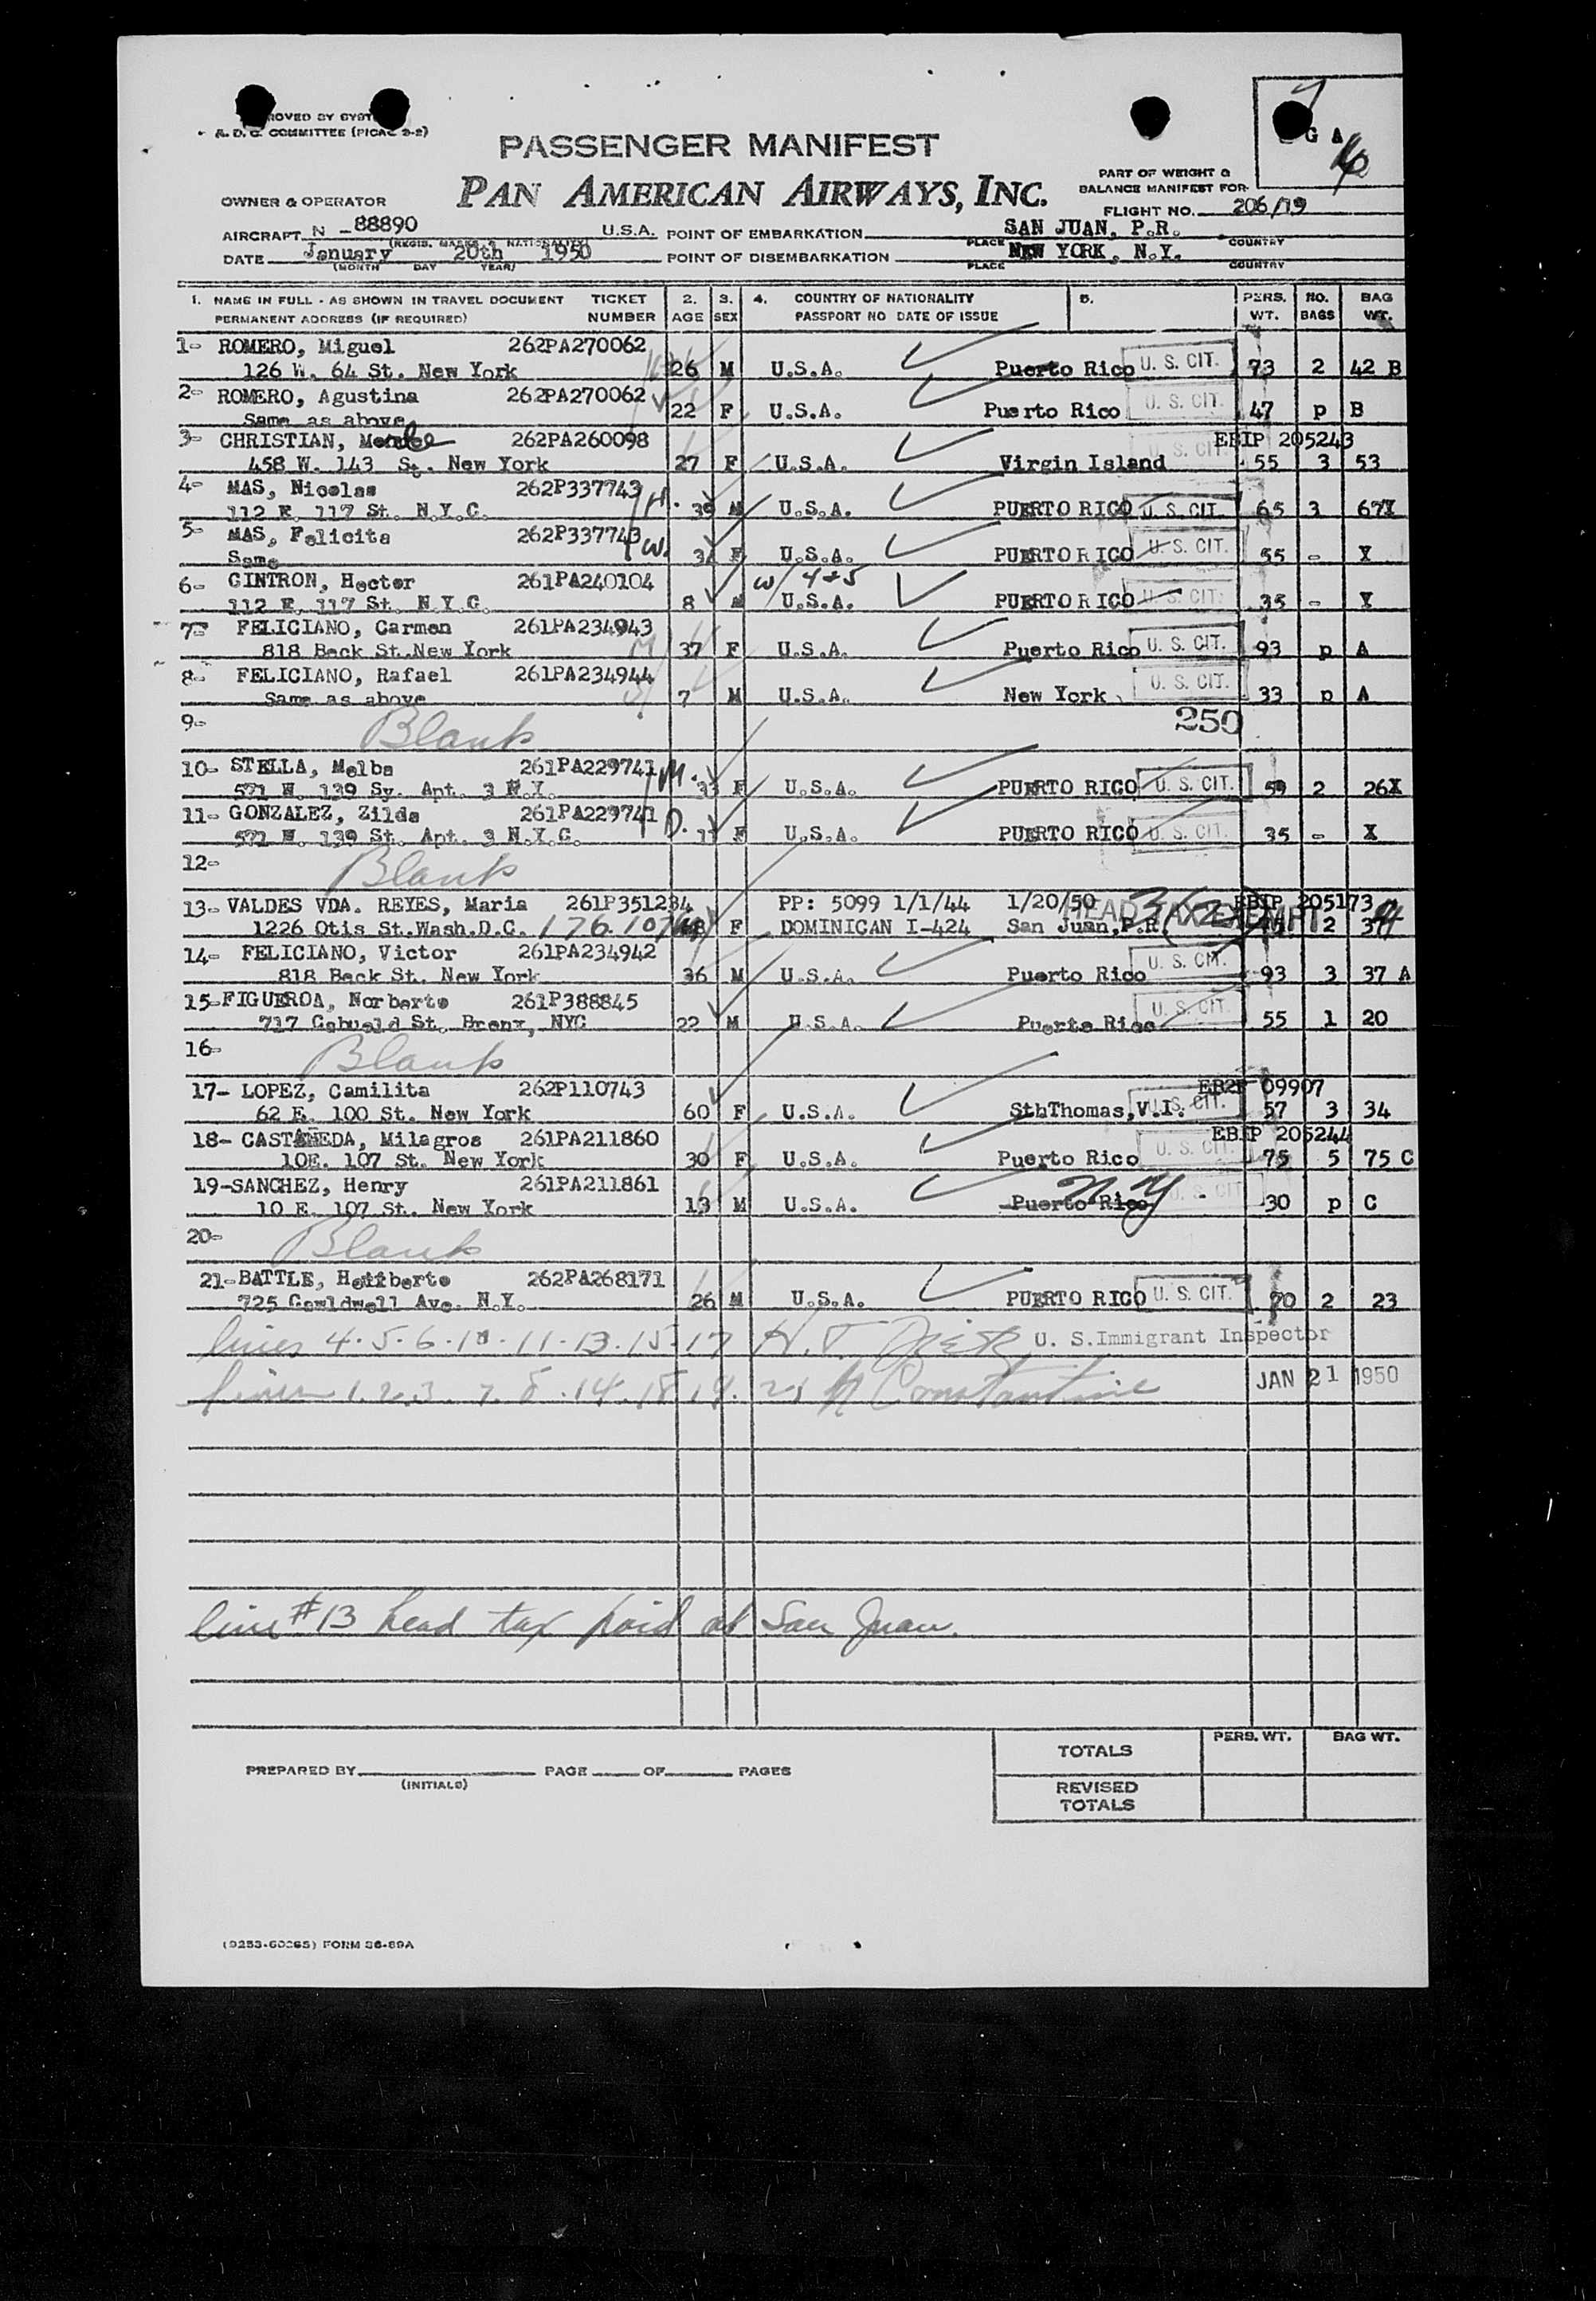 ROVED BY
A. D. C. COMMITTEE (PICAO 2-2)
G A
PASSENGER MANIFEST
PAN AMERICAN AIRWAYS, INC.
PART OF WEIGHT &
BALANCE MANIFEST FOR
FLIGHT NO. 206/19
OWNER & OPERATOR
AIRCRAFT N -88890 U.S.A. POINT OF EMBARKATION SAN JUAN, P.R.
(REGIS. MARKS & NATIONALITY) PLACE COUNTRY
DATE January 20th 1950 POINT OF DISEMBARKATION NEW YORK, N.Y.
(MONTH DAY YEAR) PLACE COUNTRY
1. NAME IN FULL - AS SHOWN IN TRAVEL DOCUMENT TICKET 2. 3. 4. COUNTRY OF NATIONALITY 5. PERS. NO. BAG
PERMANENT ADDRESS (IF REQUIRED) NUMBER AGE SEX PASSPORT NO DATE OF ISSUE WT. BAGS WT.
1- ROMERO, Miguel 262PA270062
126 W. 64 St. New York 26 M U.S.A. Puerto Rico U. S. CIT. 73 2 42 B
2- ROMERO, Agustina 262PA270062
Same as above 22 F U.S.A. Puerto Rico U. S. CIT. 47 p B
3- CHRISTIAN, 262PA260098 EBIP 205243
458 W. 143 St. New York 27 F U.S.A. Virgin Island U. S. CIT. 55 3 53
4- MAS, Nicolas 262P337743 H.
112 E. 117 St. N.Y.C. 39 M U.S.A. PUERTO RICO U. S. CIT. 65 3 67X
5- MAS, Felicita 262P337743 W.
Same 34 F U.S.A. PUERTO RICO U. S. CIT. 55 - X
6- CINTRON, Hector 261PA240104 w/ 4+5
112 E. 117 St. N.Y.C. 8 M U.S.A. PUERTO RICO U. S. CIT. 35 - X
7- FELICIANO, Carmen 261PA234943
818 Beck St. New York M 37 F U.S.A. Puerto Rico U. S. CIT. 93 p A
8- FELICIANO, Rafael 261PA234944
Same as above S 7 M U.S.A. New York U. S. CIT. 33 p A
9- Blank 250
10- STELLA, Melba 261PA229741 M.
571 W. 139 Sy. Apt. 3 N.Y. 33 F U.S.A. PUERTO RICO U. S. CIT. 59 2 26X
11- GONZALEZ, Zilda 261PA229741 D.
571 W. 139 St. Apt. 3 N.Y.C. 11 F U.S.A. PUERTO RICO U. S. CIT. 35 - X
12- Blank
13- VALDES VDA. REYES, Maria 261P351284 PP: 5099 1/1/44 1/20/50 EBIP 205173
1226 Otis St.Wash.D.C. 48 F DOMINICAN I-424 San Juan,P.R. HEAD TAX EXEMPT 2 37
14- FELICIANO, Victor 261PA234942
818 Beck St. New York 36 M U.S.A. Puerto Rico U. S. CIT. 93 3 37 A
15- FIGUEROA, Norberto 261P388845
717 St. Bronx, NYC 22 M U.S.A. Puerto Rico U. S. CIT. 55 1 20
16- Blank
17- LOPEZ, Camilita 262P110743 09907
62 E. 100 St. New York 60 F U.S.A. SthThomas,V.I. U. S. CIT. 57 3 34
18- CASTAÑEDA, Milagros 261PA211860 EBIP 205244
10E. 107 St. New York 30 F U.S.A. Puerto Rico U. S. CIT. 75 5 75 C
19- SANCHEZ, Henry 261PA211861
10 E. 107 St. New York 13 M U.S.A. Puerto Rico N Y U. S. CIT. 30 p C
20- Blank
21- BATTLE, Heriberto 262PA268171
725 Ave. N.Y. 26 M U.S.A. PUERTO RICO U. S. CIT. 70 2 23
lines 4-5-6-10-11-13-15-17 H. T. U. S. Immigrant Inspector
lines 1.2.3. 7. 8. 14. 18 19. 21 N Constantine JAN 21 1950
line #13 head tax paid at San Juan.
PERS. WT. BAG WT.
TOTALS
PREPARED BY PAGE OF PAGES
(INITIALS)
REVISED
TOTALS
FORM 36-89A